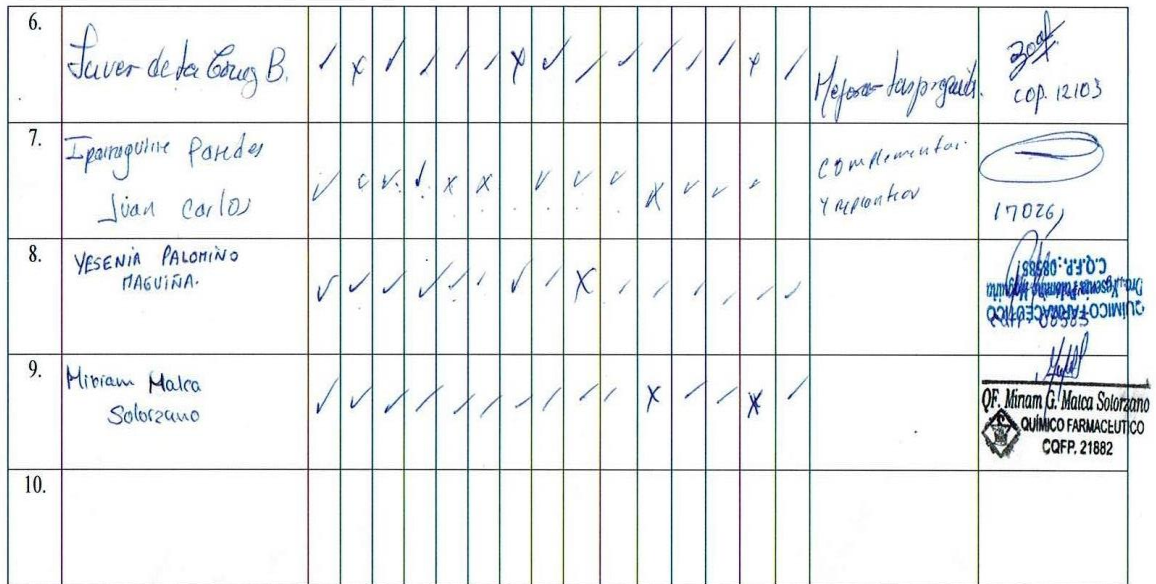 6.
Javer de la Cruz B. ✓ X ✓ ✓ ✓ ✓ X ✓ ✓ ✓ ✓ ✓ ✓ X ✓
Mejorar las
COP. 12103
7.
Iparraguirre Paredes
Juan Carlos ✓ ✓ ✓ ✓ X X ✓ ✓ ✓ X ✓ ✓ ✓
Complementar
Y replantear
17026
8.
YESENIA PALOMINO
MAGUIÑA. ✓ ✓ ✓ ✓ ✓ ✓ ✓ ✓ X ✓ ✓ ✓ ✓ ✓ ✓
QUÍMICO FARMACÉUTICO
Dra. Yesenia Palomino Maguiña
C.Q.F.P.: 08585
9.
Miriam Malca
Solorzano ✓ ✓ ✓ ✓ ✓ ✓ ✓ ✓ ✓ ✓ X ✓ ✓ X ✓
QF. Miriam G. Malca Solorzano
QUÍMICO FARMACEUTICO
CQFP. 21882
10.